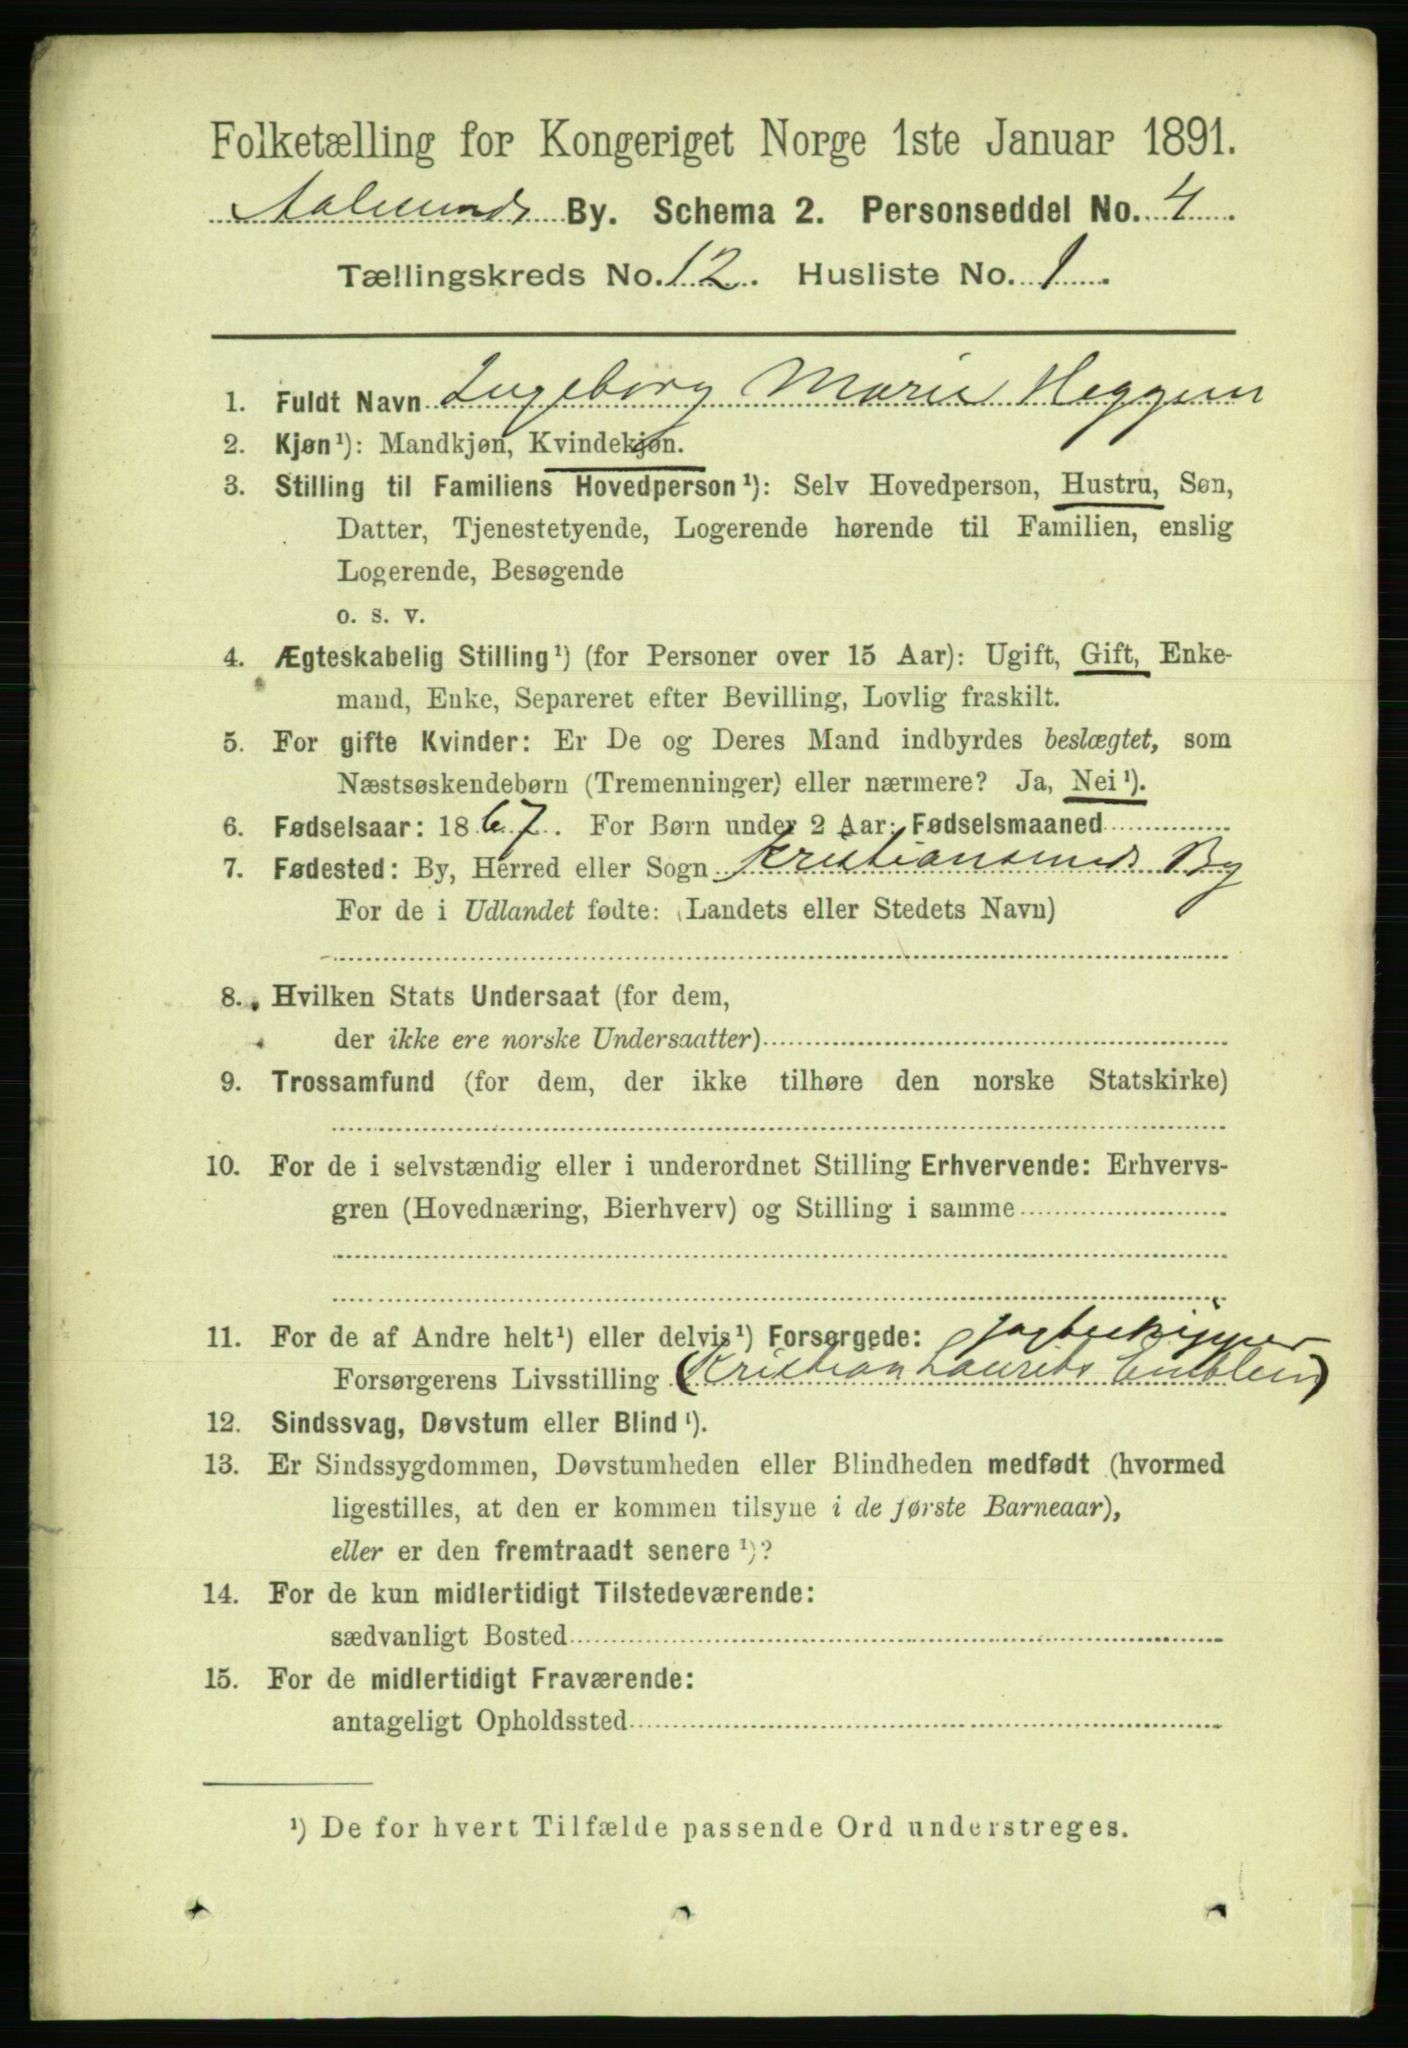 Folketælling for Kongeriget Norge 1ste Januar 1891.
Aalesunds By. Schema 2. Personseddel No. 4
Tællingskreds No. 12. Husliste No. 1
1. Fuldt Navn Ingeborg Marie Heggem
2. Kjøn¹): Mandkjøn, Kvindekjøn.
3. Stilling til Familiens Hovedperson¹): Selv Hovedperson, Hustru, Søn,
Datter, Tjenestetyende, Logerende hørende til Familien, enslig
Logerende, Besøgende
o. s. v.
4. Ægteskabelig Stilling¹) (for Personer over 15 Aar): Ugift, Gift, Enke-
mand, Enke, Separeret efter Bevilling, Lovlig fraskilt.
5. For gifte Kvinder: Er De og Deres Mand indbyrdes beslægtet, som
Næstsøskendebørn (Tremenninger) eller nærmere? Ja, Nei¹).
6. Fødselsaar: 1867. For Børn under 2 Aar: Fødselsmaaned
7. Fødested: By, Herred eller Sogn Kristiansunds By
For de i Udlandet fødte: (Landets eller Stedets Navn)
8. Hvilken Stats Undersaat (for dem,
der ikke ere norske Undersaatter)
9. Trossamfund (for dem, der ikke tilhøre den norske Statskirke)
10. For de i selvstændig eller i underordnet Stilling Erhvervende: Erhvervs-
gren (Hovednæring, Bierhverv) og Stilling i samme
11. For de af Andre helt¹) eller delvis¹) Forsørgede: Jagteskipper
Forsørgerens Livsstilling (Kristian Laurits Emblem)
12. Sindssvag, Døvstum eller Blind¹).
13. Er Sindssygdommen, Døvstumheden eller Blindheden medfødt (hvormed
ligestilles, at den er kommen tilsyne i de første Barneaar),
eller er den fremtraadt senere¹)?
14. For de kun midlertidigt Tilstedeværende:
sædvanligt Bosted
15. For de midlertidigt Fraværende:
antageligt Opholdssted
¹) De for hvert Tilfælde passende Ord understreges.